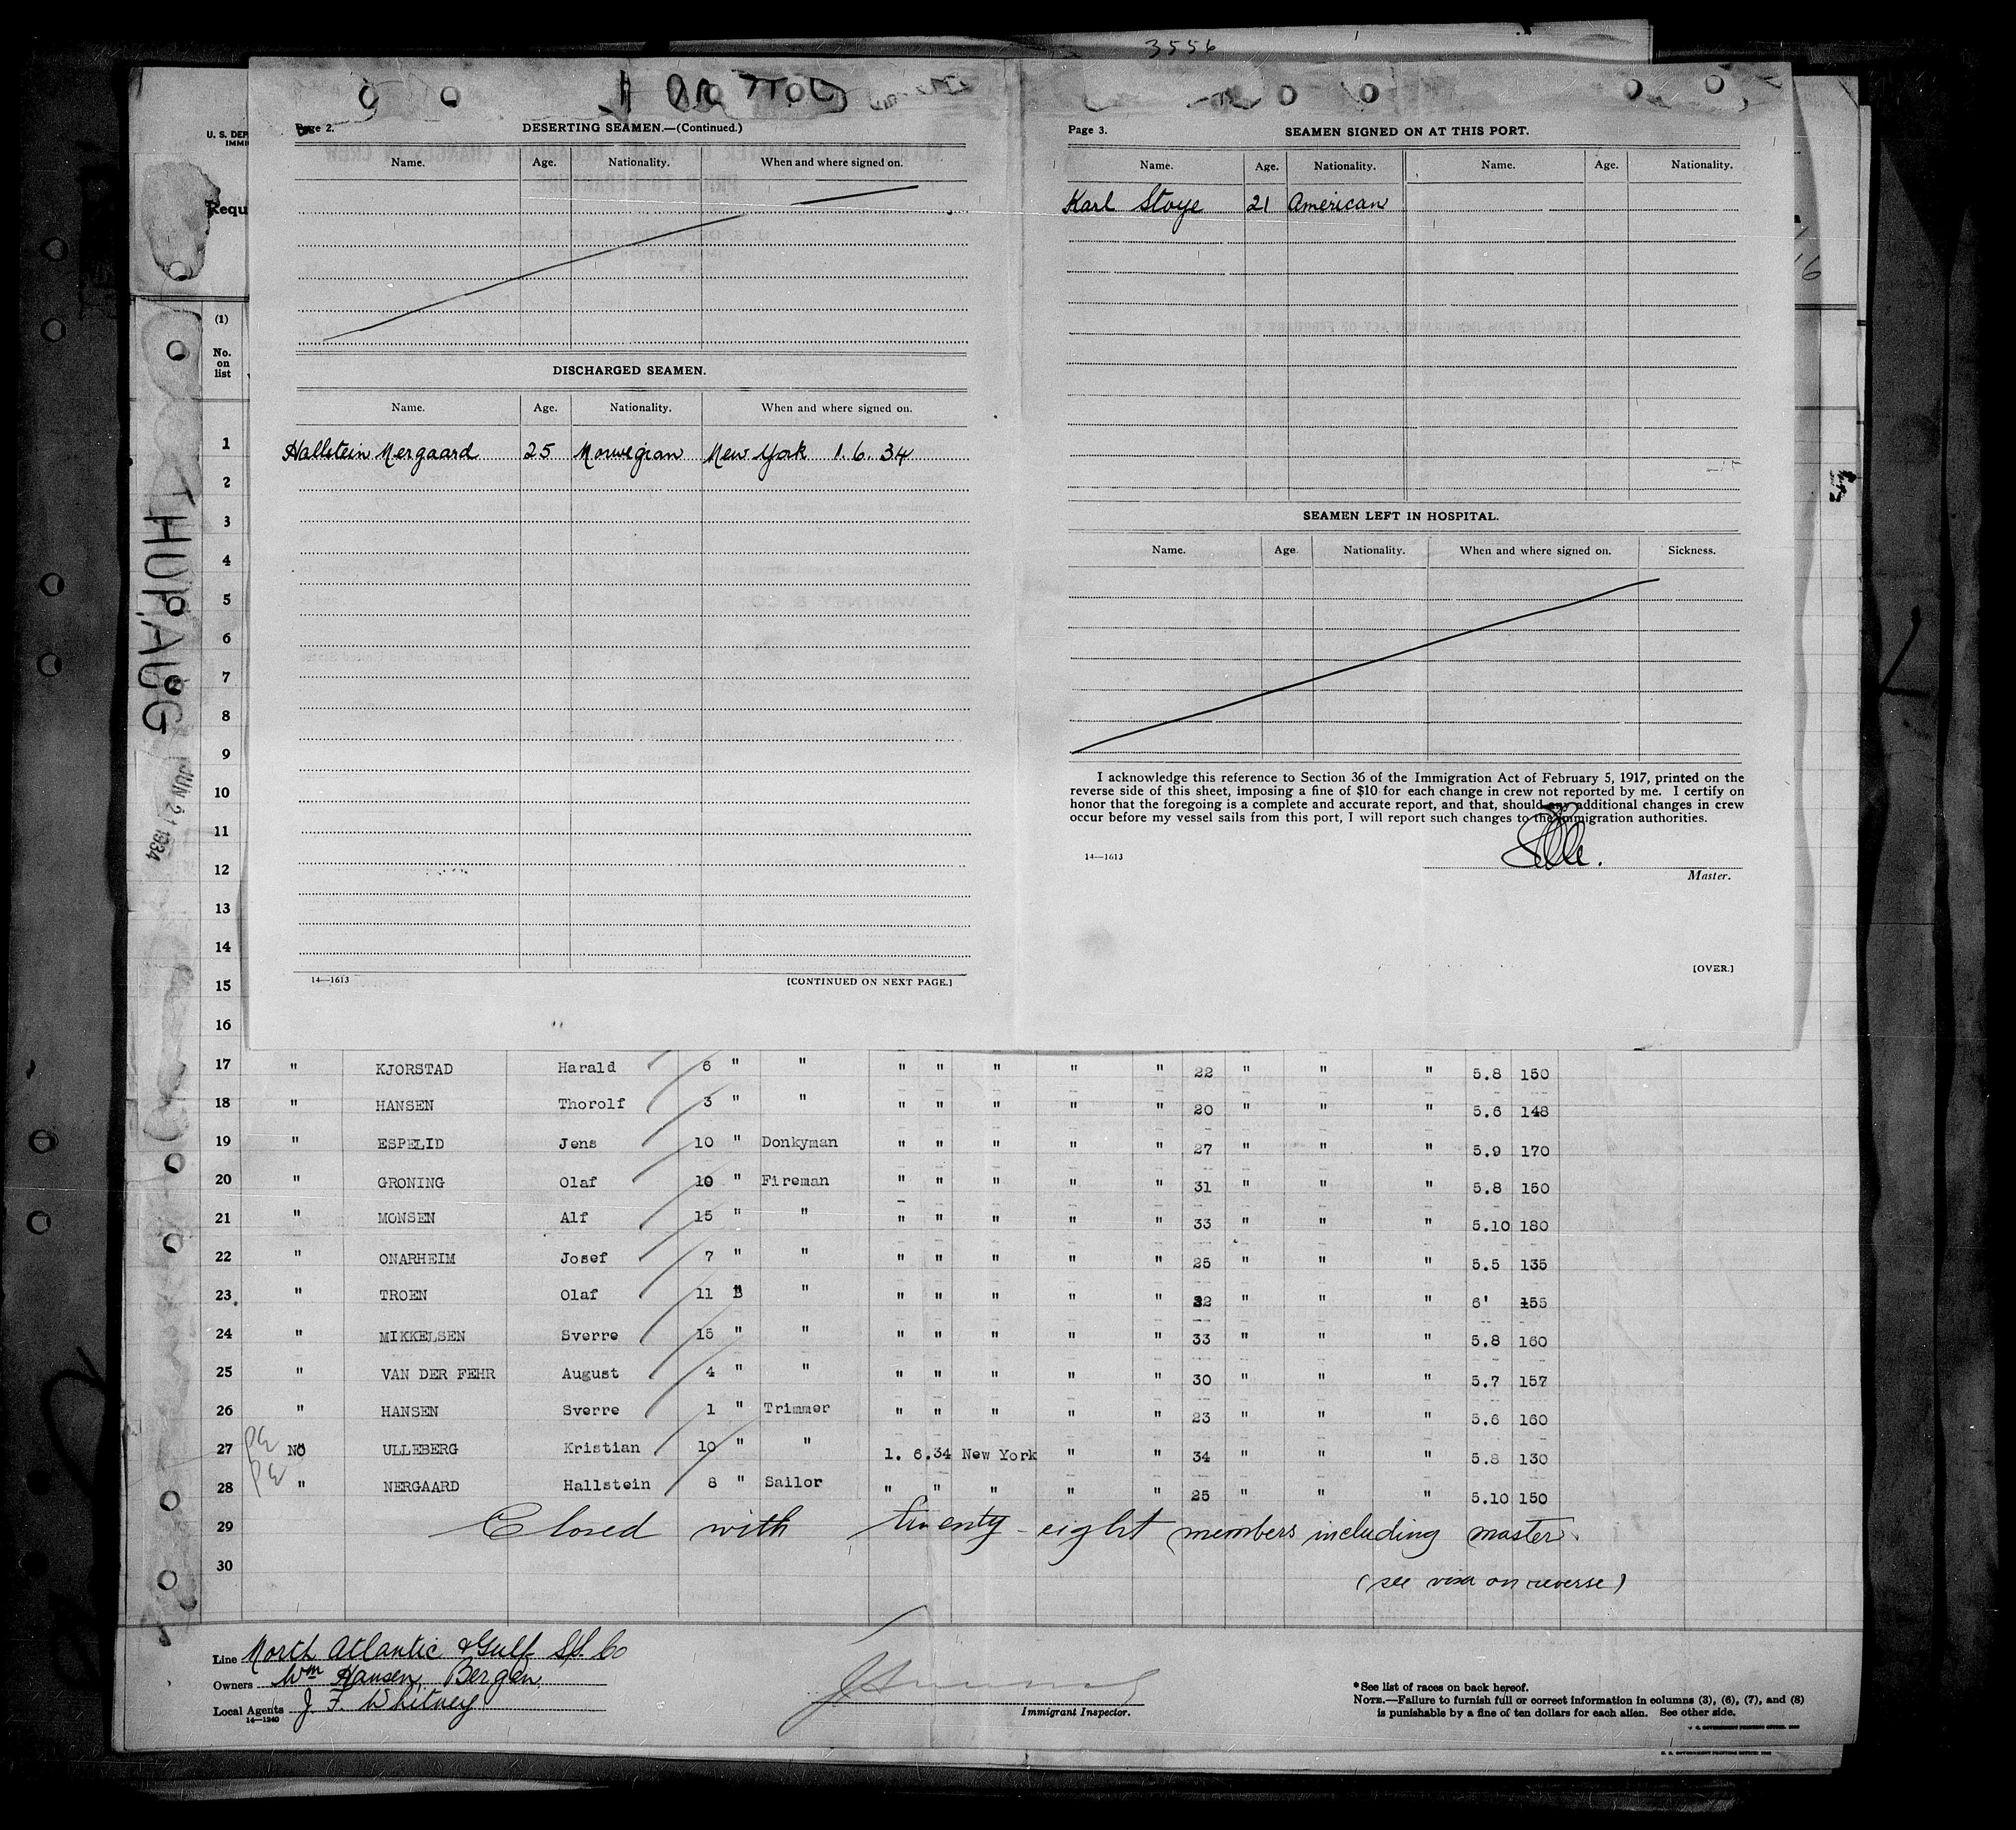 3556
Page 2.
DESERTING SEAMEN.—(Continued.)
Name. Age. Nationality. When and where signed on.
DISCHARGED SEAMEN.
Name. Age. Nationality. When and where signed on.
Hallstein Nergaard 25 Norwegian New York 1.6.34
14—1613 [CONTINUED ON NEXT PAGE.]
Page 3.
SEAMEN SIGNED ON AT THIS PORT.
Name. Age. Nationality. Name. Age. Nationality.
Karl Stoye 21 American
SEAMEN LEFT IN HOSPITAL.
Name. Age. Nationality. When and where signed on. Sickness.
I acknowledge this reference to Section 36 of the Immigration Act of February 5, 1917, printed on the
reverse side of this sheet, imposing a fine of $10 for each change in crew not reported by me. I certify on
honor that the foregoing is a complete and accurate report, and that, should any additional changes in crew
occur before my vessel sails from this port, I will report such changes to the immigration authorities.
14—1613
Master.
[OVER.]
U. S. DEP
IMMI
Requ
(1)
No.
on
list
JUN 21 1934
1
2
3
4
5
6
7
8
9
10
11
12
13
14
15
16
17 " KJORSTAD Harald 6 " " " " " " " 22 " " " 5.8 150
18 " HANSEN Thorolf 3 " " " " " " " 20 " " " 5.6 148
19 " ESPELID Jens 10 " Donkyman " " " " " 27 " " " 5.9 170
20 " GRONING Olaf 10 " Fireman " " " " " 31 " " " 5.8 150
21 " MONSEN Alf 15 " " " " " " " 33 " " " 5.10 180
22 " ONARHEIM Josef 7 " " " " " " " 25 " " " 5.5 135
23 " TROEN Olaf 11 " " " " " " " 32 " " " 6' 155
24 " MIKKELSEN Sverre 15 " " " " " " " 33 " " " 5.8 160
25 " VAN DER FEHR August 4 " " " " " " " 30 " " " 5.7 157
26 " HANSEN Sverre 1 " Trimmer " " " " " 23 " " " 5.6 160
27 No ULLEBERG Kristian 10 " " 1. 6.34 New York " " 34 " " " 5.8 130
28 " NERGAARD Hallstein 8 " Sailor " " " " " 25 " " " 5.10 150
29 Closed with twenty-eight members including master.
30
(see visa on reverse)
Line North Atlantic & Gulf SS. Co
Owners Wm Hansen, Bergen.
Local Agents J. F. Whitney
14—1240
Immigrant Inspector.
*See list of races on back hereof.
NOTE.—Failure to furnish full or correct information in columns (3), (6), (7), and (8)
is punishable by a fine of ten dollars for each alien. See other side.